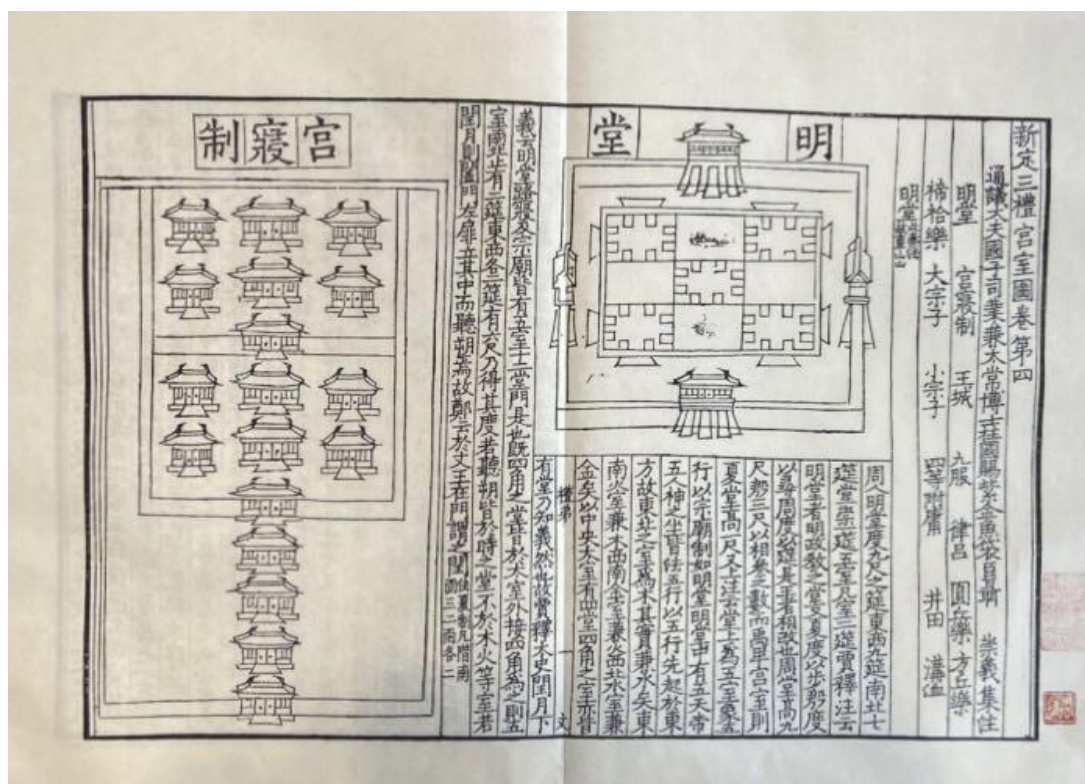 新定三禮宮室圖卷第四
通議大夫國子司業兼太常博士柱國賜紫金魚袋臣聶 崇義集注
明堂 宮寢制 王城 九服 律呂 圓丘樂 方丘樂
禘祫樂 大宗子 小宗子 四等附庸 井田 溝洫
明堂
明堂
周人明堂度九尺之筵東西九筵南北七
筵堂崇一筵五室凡室二筵賈釋注云
明堂者明政教之堂又夏度以步殷度
以尋周度以筵是王者相改也周堂高九
尺殷三尺以相參之數而禹卑宮室則
夏堂高一尺又上注云堂上為五室象五
行以宗廟制如明堂明堂中有五天帝
五人神之坐皆法五行以五行先起於東
方故東北之室為木其實兼水矣東
南火室兼木西南金室兼火西北水室兼
金矣以中央太室有四堂四角之室亦皆
禮弟 一 文
有堂乃知義然也故賈釋太史閏月下
義云明堂路寢及宗廟皆有五室十二堂門是也既四角之堂皆於太室外接四角為之則五
室南北止有二筵東西各二筵有六尺乃得其度若聽朔皆於時之堂不於木火等室若
閏月則闔門左扉立其中而聽朔焉故鄭云於文王在門謂之閏 夏制九階南
面三三面各二
宮寢制